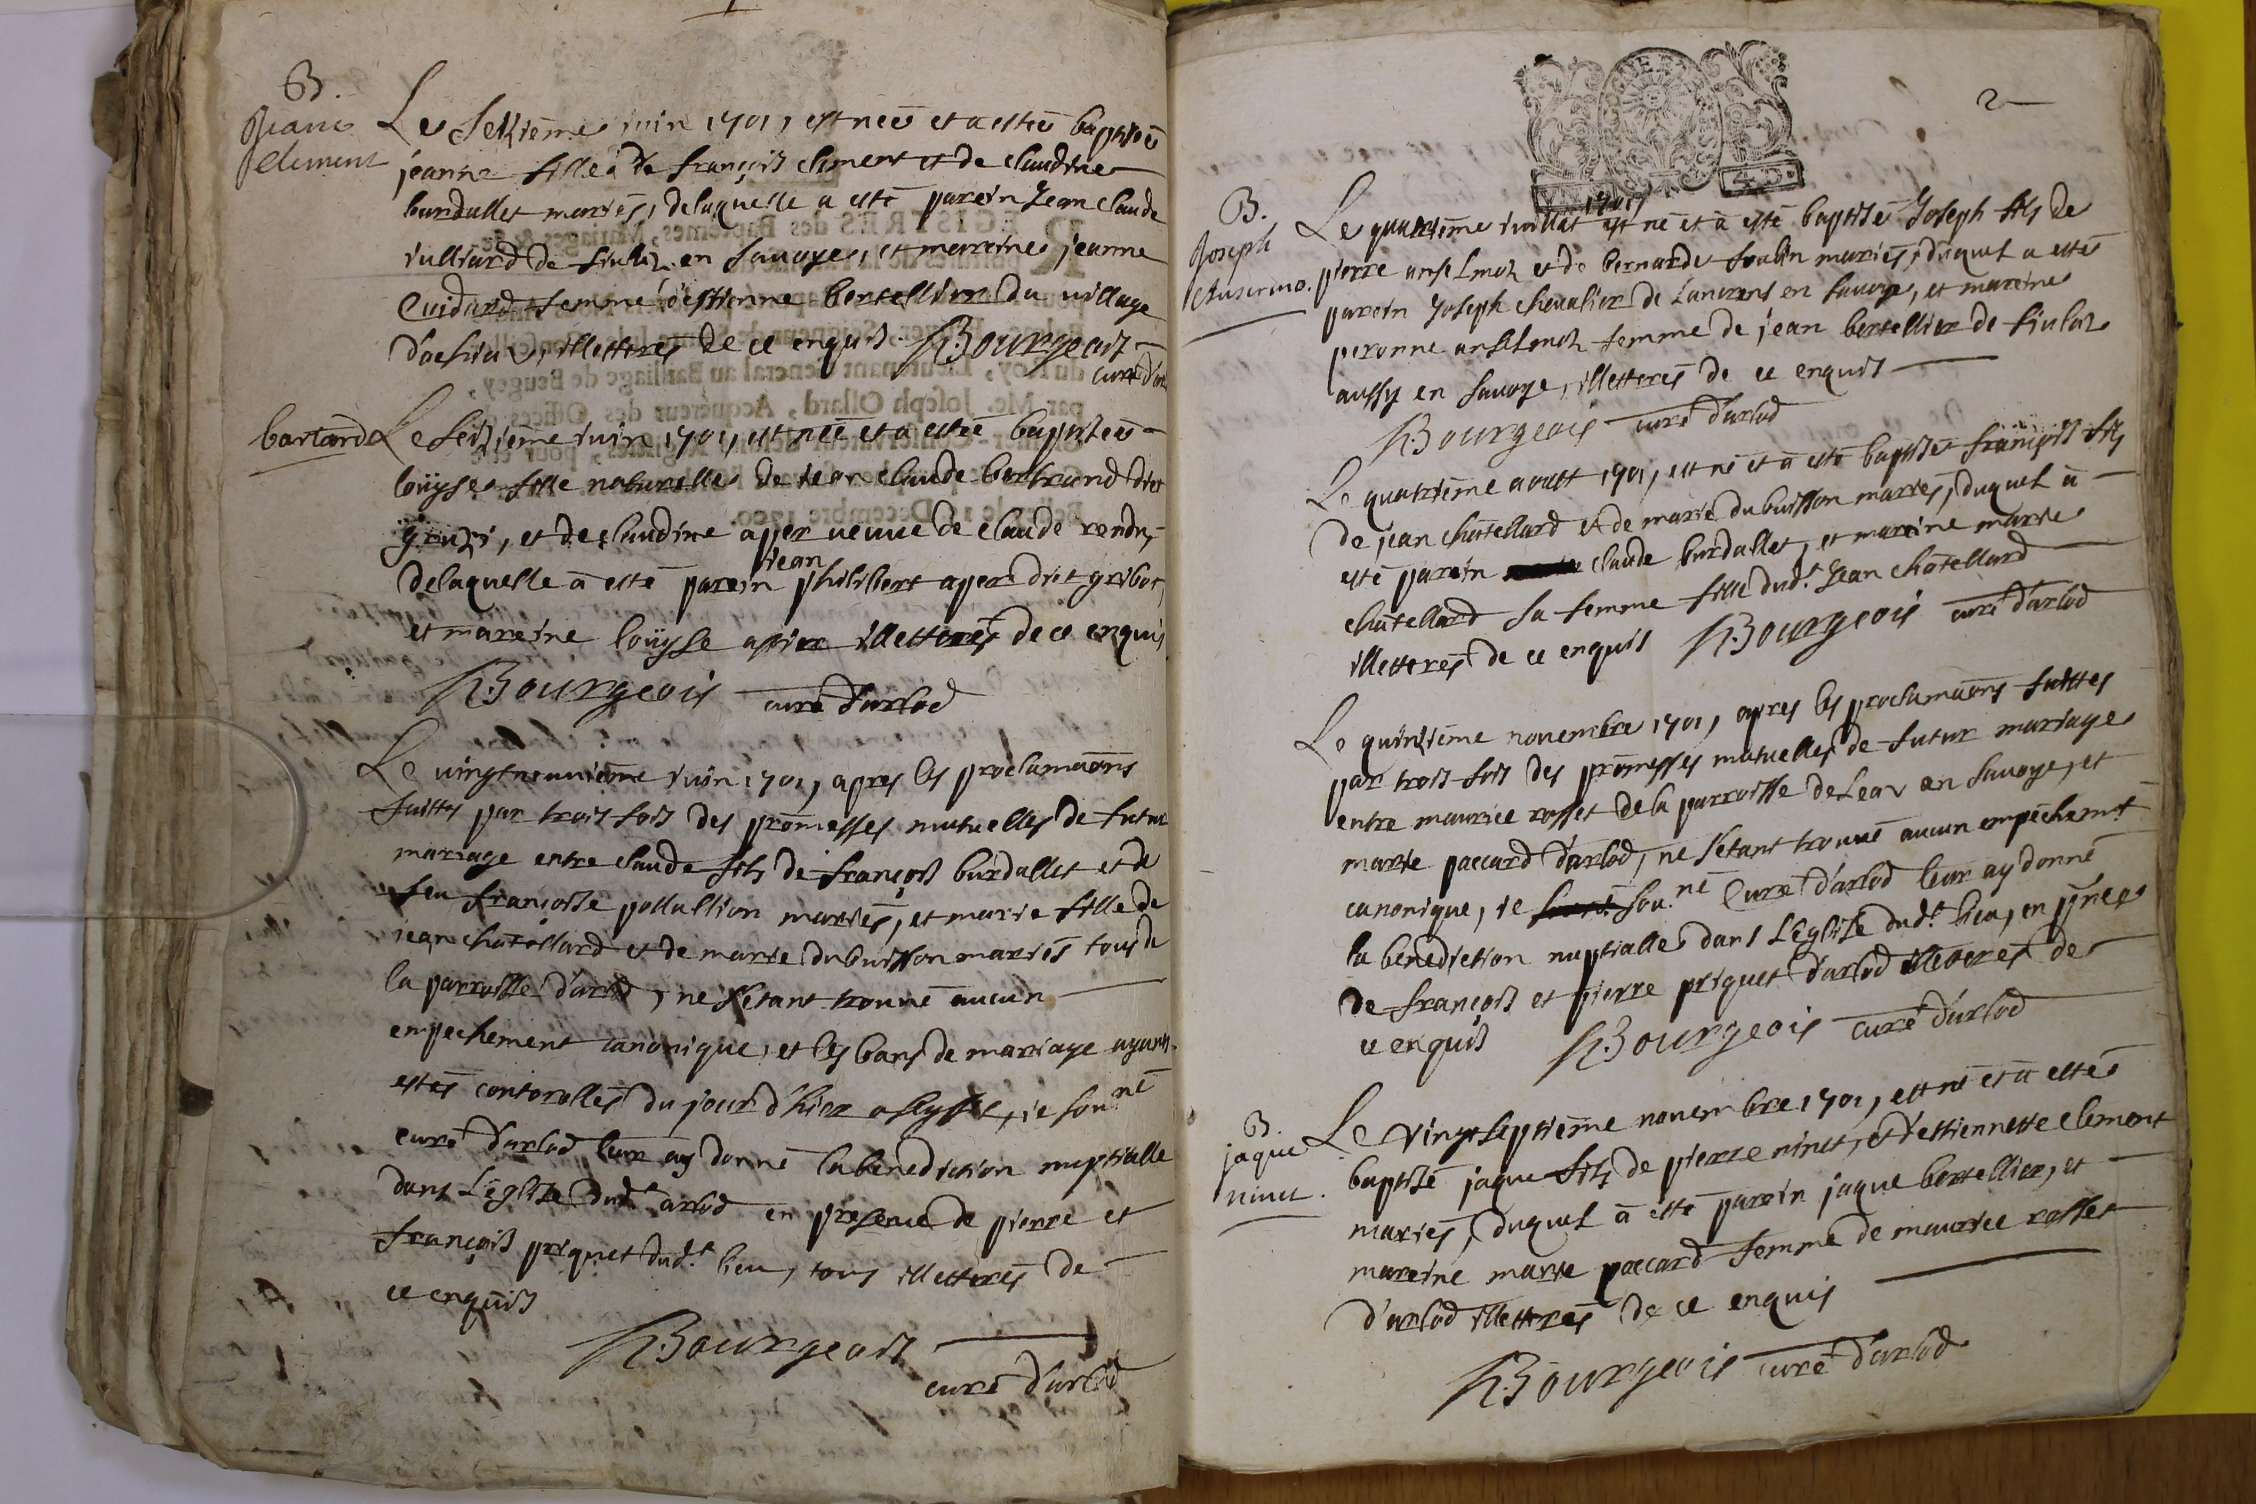 B.
Jeanne
Clement
Le Seizième juin 1701, est neé et a estée baptiseé
jeanne fille de françois clement et de claudine
burdallet mariés, delaquelle a esté parein Jean claude
julliard de en Savoye, et mareine jeanne
Cuidard femme d'estienne bertellier du village
illetterés de ce enquis. Bourgeois
curé d'arlod
bartarde
Le Seizième juin 1701, est née et a estée baptiseé
loüyse fille naturelle de jean claude bertrand dict
et de claudine aper veuve de claude
delaquelle à esté parein jean philibert aper dict gribot,
et mareine loüyse illetterés de ce enquis
Bourgeois curé d'arlod
Le vingtneuvieme juin 1701, apres les proclamaõns
faittes par trois fois des promesses mutuelles de futur
mariage entre claude fils de françois burdallet et de
feu françoise pollallion mariés, et marie fille de
jean châtellard et de marie dubuisson mariés tous de
la parroisse d'arlod, ne s'etant trouvé aucun
empechement canonique, et les bans de mariage ayants
estés controllés du jour d'hier a Seyssel, je sou.né
curé d'arlod leur ay donné la benediction nuptialle
dans L'eglise dud.t arlod en presence de pierre et
françois priquet dud.t lieu, tous illetterés de
ce enquis
Bourgeois
curé d'arlod
2
40.
B.
Joseph
Ansermo.
Le quatrième juillet 1701 est né et à esté baptisé Joseph fils de
pierre anselmoz et de bernarde mariés, duquel a esté
parein Joseph chevalier de Lancrens en Savoye, et mareine
peronne anselmoz femme de jean bertellier de
aussy en Savoye, illetterés de ce enquis
Bourgeois curé d'arlod
Le quatrième aoust 1701, est né et à esté baptisé françois fils
de jean châtellard et de marie dubuisson mariés, duquel à
esté parein claude burdallet, et mareine marie
châtellard sa femme fille dud.t Jean châtellard
illetterés de ce enquis Bourgeois curé d'arlod
Le quinzième novembre 1701, apres les proclamaõns faittes
par trois fois des promesses mutuelles de futur mariage
entre maurice rosset de la parroisse de en Savoye, et
marie paccard d'arlod, ne s'étant trouvé aucun empêchem.t
canonique, je sou.né Curé d'arlod leur ay donné
la benediction nuptialle dans L'eglise dud.t lieu, en pñce
de françois et pierre priquet d'arlod illetterés de
ce enquis Bourgeois curé d'arlod
B.
jaque
ninet.
Le vingtseptième novembre 1701, est né et à esté
baptisé jaque fils de pierre ninet, et d'estiennette clement
mariés, duquel à esté parein jaque bertellier, et
mareine marie paccard femme de maurice rosset
d'arlod illetterés de ce enquis
Bourgeois curé d'arlod